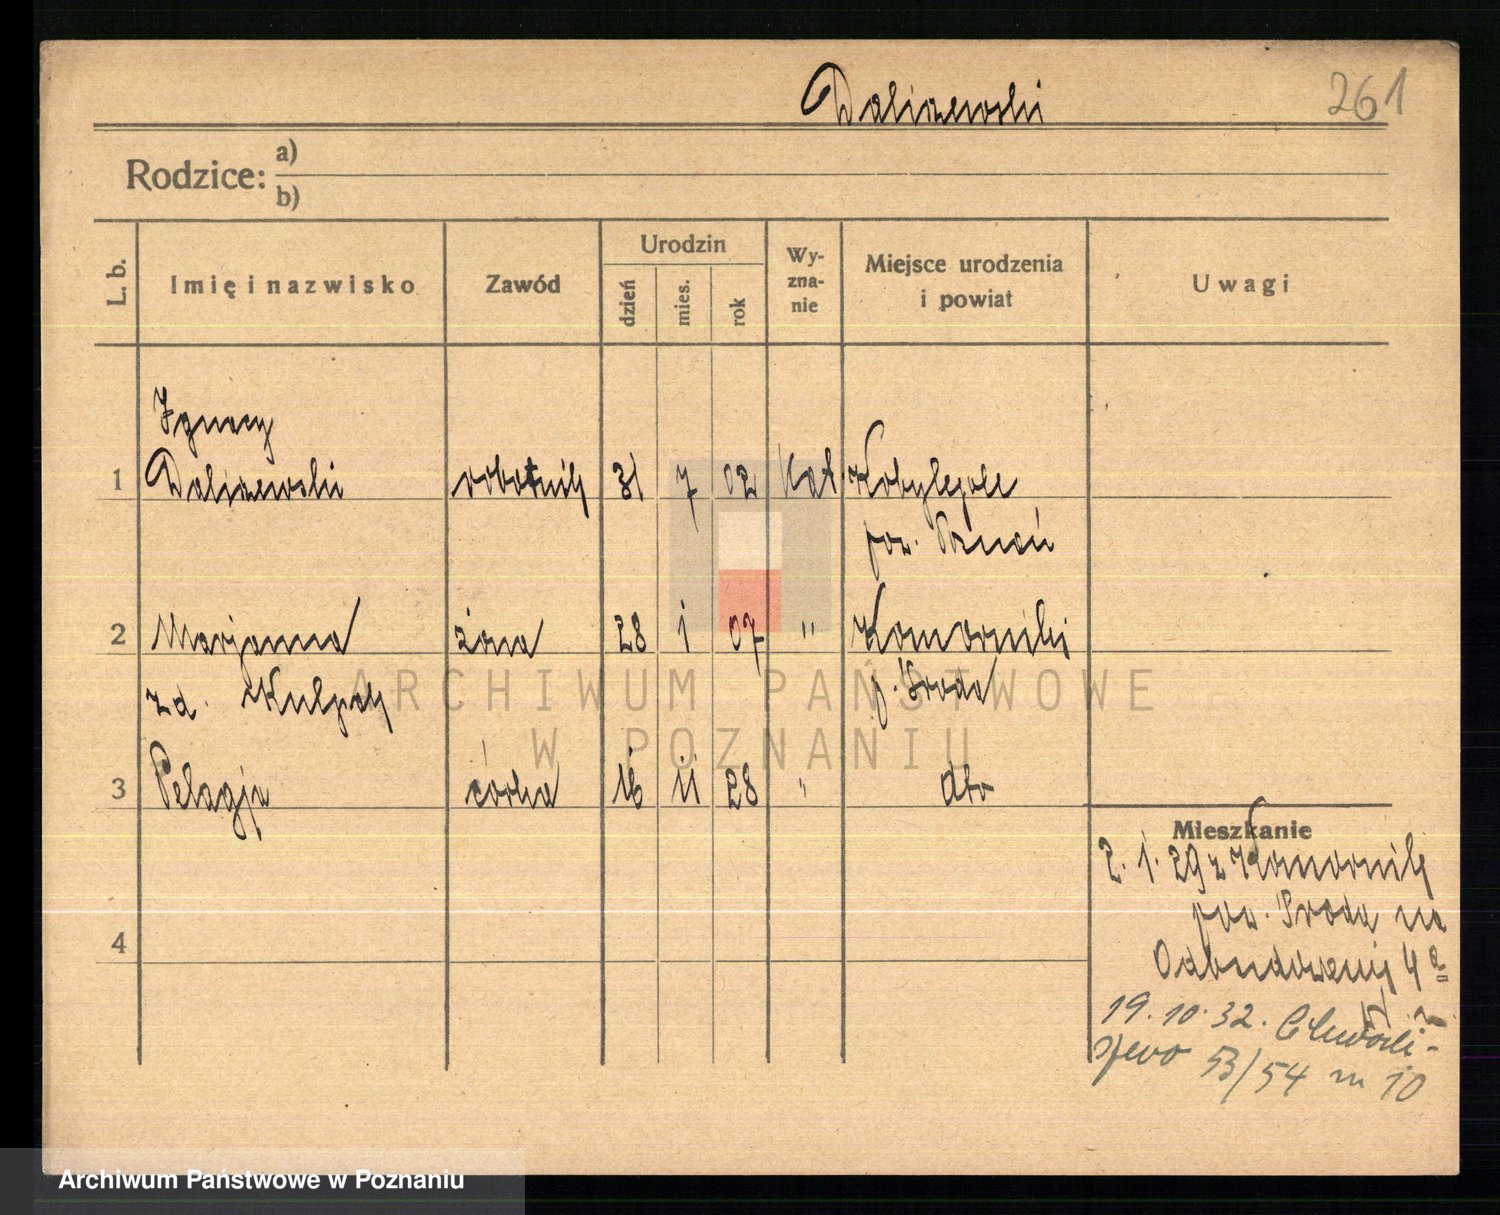 Daliszewski 261
Rodzice: a)
b)
L. b. Imię i nazwisko Zawód Urodzin dzień mies. rok Wy-zna-nie Miejsce urodzenia i powiat Uwagi
Ignacy
1 Daliszewski robotnik 31 7 02 Kat Kobylepole
pow. Poznań
2 Marjanna żona 28 1 07 " Komorniki
zd. Kulpok p. Środa
3 Pelagja córka 16 11 28 " dto
Mieszkanie
2. 1. 29 z Komornik
pow. Środa na
4
4a
19. 10. 32.
53/54 m 10
ARCHIWUM PAŃSTWOWE
W POZNANIU
Archiwum Państwowe w Poznaniu